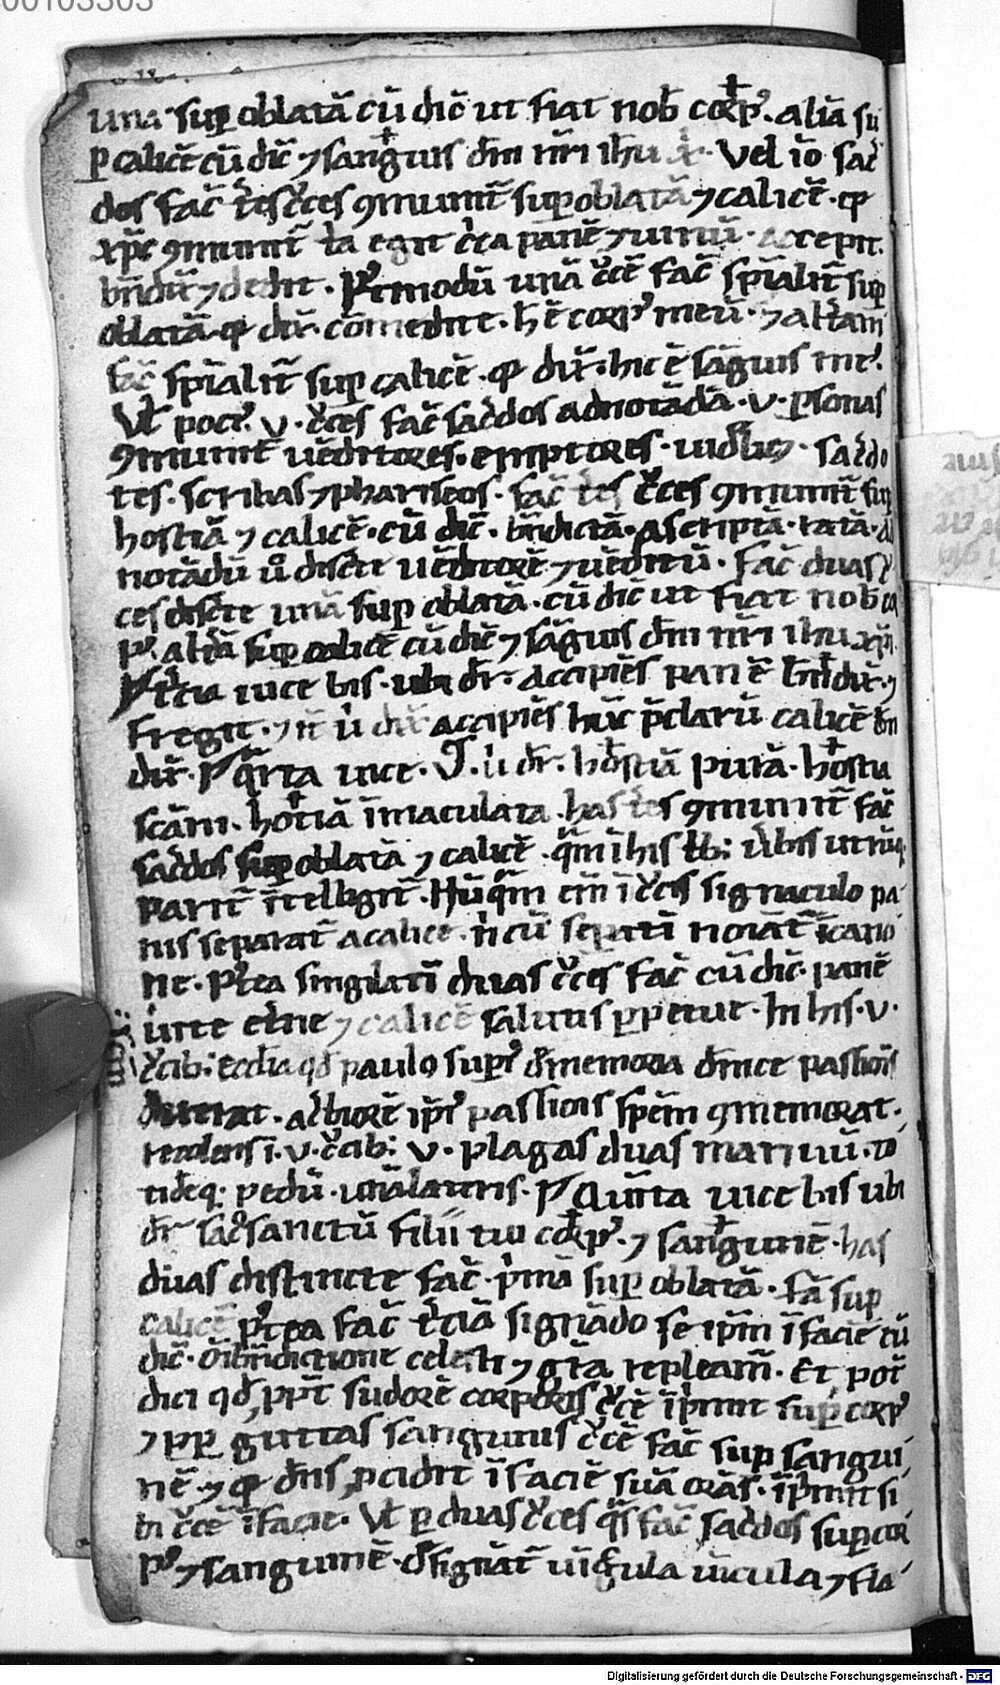 00103303
una sup oblatā cū dic̄ ut fiat nob̄ corp⁹. aliā su
p calicē cū dic̄ ⁊ sanguis dn̄i nr̄i ih̄u x̄. Vel iō sac̄
dos fac̄ t̄s c̄ces ꝯmunit̄ sup oblatā ⁊ calicē. qꝛ
xp̄c ꝯmunit̄ t̄a egit c̄ca panē ⁊ uinū. accepit.
bn̄dix̄ ⁊ dedit. Postmodū unā c̄cē fac̄ sp̄ialit̄ sup
oblatā qꝛ dix̄. comedite. h̄ ē corp⁹ meū. ⁊ alt̄am
fac̄ sp̄ialit̄ sup calicē. qꝛ dix̄. hic ē sāguis me⁹.
Vt̄ poci⁹. v. c̄ces fac̄ sac̄dos ad notādā. v. p̱sonas
ꝯmunit̄ uēditores. emptores. uidelic̄ꝫ. sac̄do
tes. scribas ⁊ phariseos. fac̄ t̄s c̄ces ꝯmunit̄ sup
hostiā ⁊ calicē. cū dic̄. bn̄dictā. ascriptā. ratā. ad
notādū ů disc̄te uēditorē ⁊ uēditū. fac̄ duas c̄
ces disc̄te unā sup oblatā. cū dic̄ ut fiat nob̄ co
rp⁹. aliā sup calicē cū dic̄ ⁊ sāguis dn̄i nr̄i ih̄u xp̄i.
t̄cia uice bis. ubi dr̄. accipiēs panē bn̄dix̄. ⁊
fregit. ⁊ it̄ ibi dr̄ accipiēs hūc p̄clarū calicē bn̄
dix̄. q̄rta uice. ibi dr̄. hostiā purā. hostiā
scām. hostiā īmaculatā. has t̄s ꝯmunit̄ fac̄
sac̄dos sup oblatā ⁊ calicē. q̄m ī his t̄b; u̇bis utrūq;
parit̄ ītelligit̄. Nūq̄m em̄ ī c̄cis signaculo pa
nis separat̄ a calice. n̄ cū separati noīat̄ ī cano
ne. p⁹tea singulati duas c̄ces fac̄ cū dic̄. panē
uite et̄ne ⁊ calicē salutis p̱petue. In his. v.
c̄cib; ecc̄lia qd̄ paulo sup̱i⁹ memoria dn̄ice passiois
atiorē ipi⁹ passiois sp̄em ꝯmemorat.
recolens ī. v. c̄cib; v. plagas duas manuū. to
tideq; pedū. unā lateris. Quīta uice bis ubi
dr̄ sac̄sanctū filii tui corp⁹. ⁊ sanguinē. has
duas distincte fac̄. p̄mā sup oblatā. scd̄ā sup
calicē p⁹tea fac̄ t̄ciā signādo se ip̄m ī facie cū
dic̄. oī bn̄dictione celesti ⁊ gr̄a repleam̄. Et pot̄
dici qd̄ ppt̄ sudorē corporis c̄cē īp̄mit sup̱ corp⁹
⁊ pp̱ guttas sanguinis c̄cē fac̄ sup sangui
nē. ⁊ qꝛ dn̄s pcidit ī faciē suā orās. īp̄mit si
bi c̄cē ī facie. Vt̄ p̱ duas c̄ces q̄s fac̄ sac̄dos sup cor
p⁹ ⁊ sanguinē. designāt̄ uincula ⁊ fla
Digitalisierung gefördert durch die Deutsche Forschungsgemeinschaft - DFG